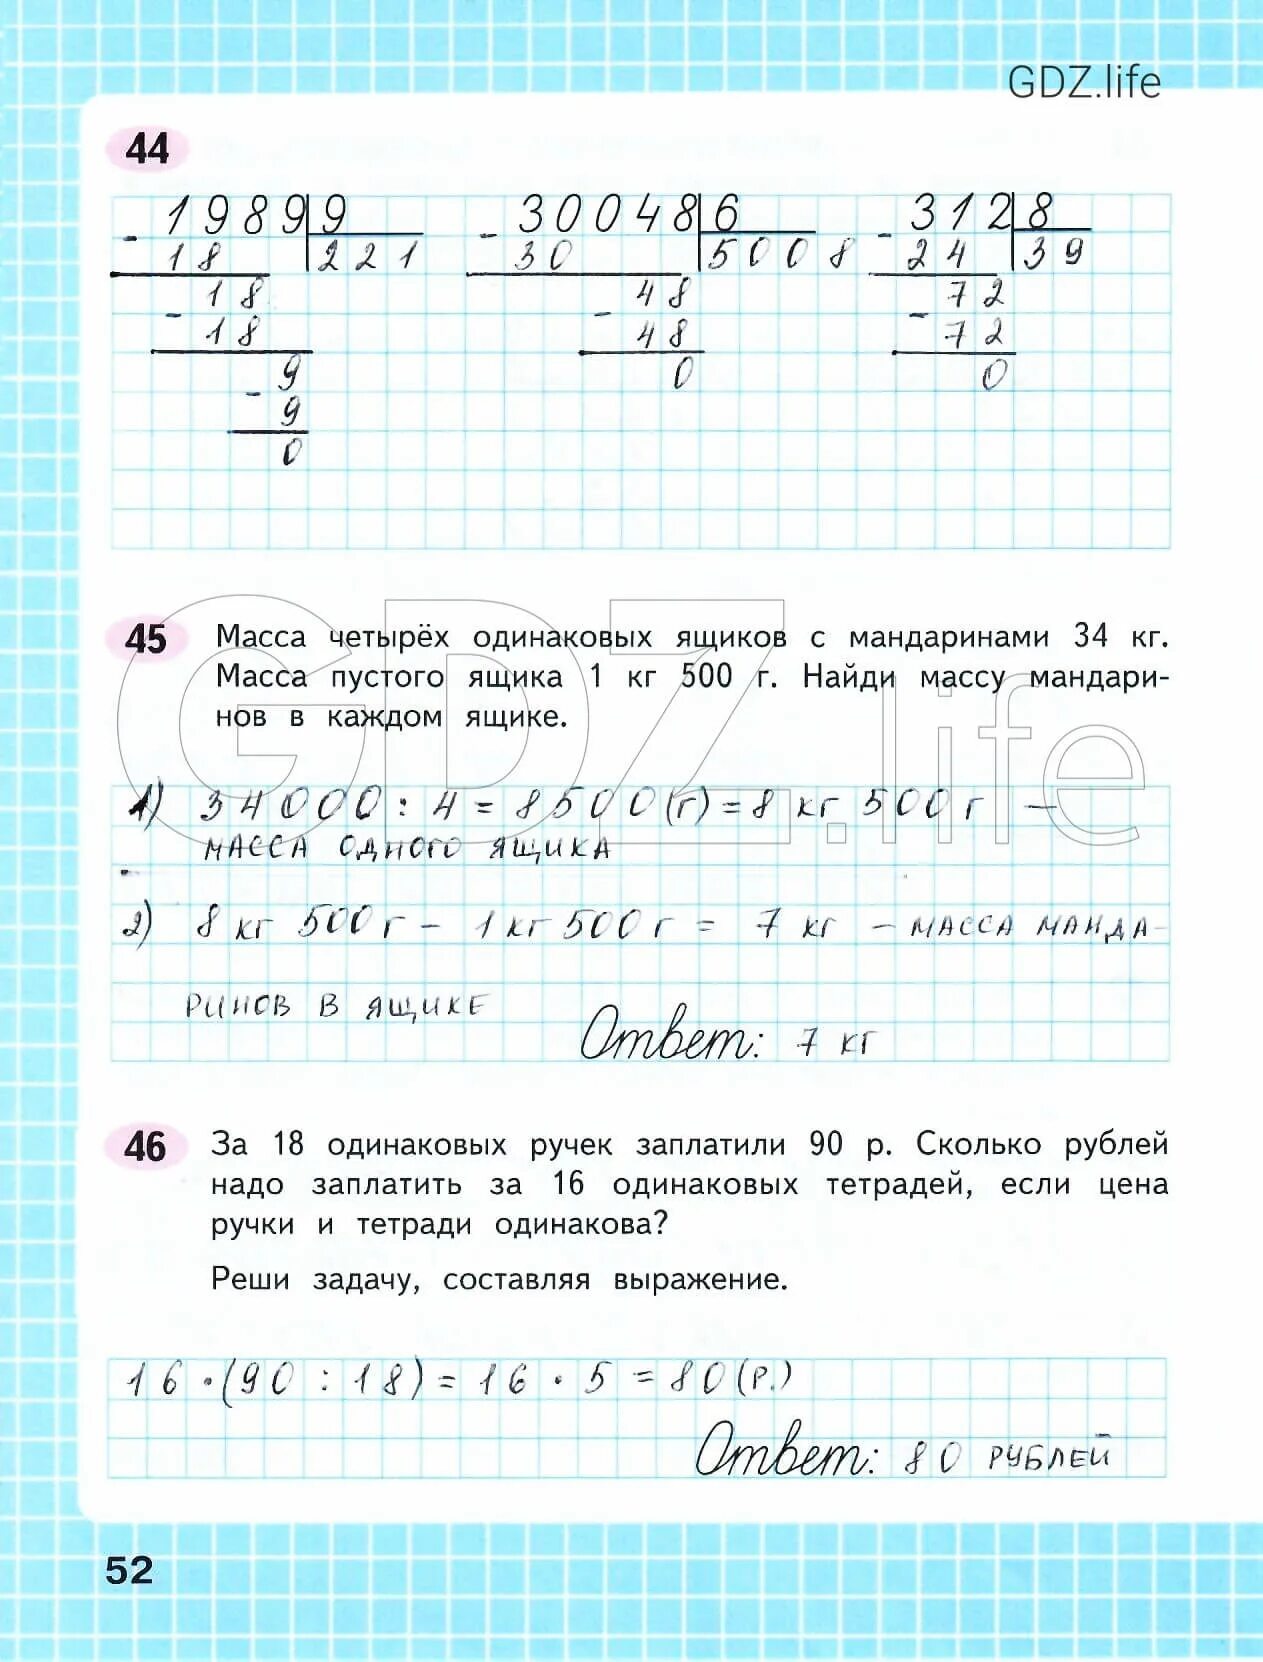 GDZ.life
44
1989 9 30048 6 312 8
18 221 30 5008 24 39
18 48 72
18 48 72
9 0 0
9
0
45 Масса четырёх одинаковых ящиков с мандаринами 34 кг.
Масса пустого ящика 1 кг 500 г. Найди массу мандари-
нов в каждом ящике.
GDZ.life
1) 34000 : 4 = 8500 (г) = 8 кг 500 г –
масса одного ящика
2) 8 кг 500 г – 1 кг 500 г = 7 кг – масса манда-
ринов в ящике
Ответ: 7 кг
46 За 18 одинаковых ручек заплатили 90 р. Сколько рублей
надо заплатить за 16 одинаковых тетрадей, если цена
ручки и тетради одинакова?
Реши задачу, составляя выражение.
16 · (90 : 18) = 16 · 5 = 80 (р.)
Ответ: 80 рублей
52